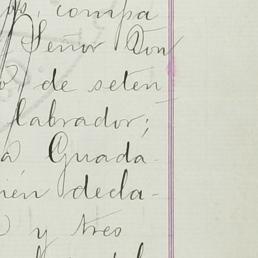 compa
Señor Don
de seten
labrador;
a Guada-
ién decla-
y tres